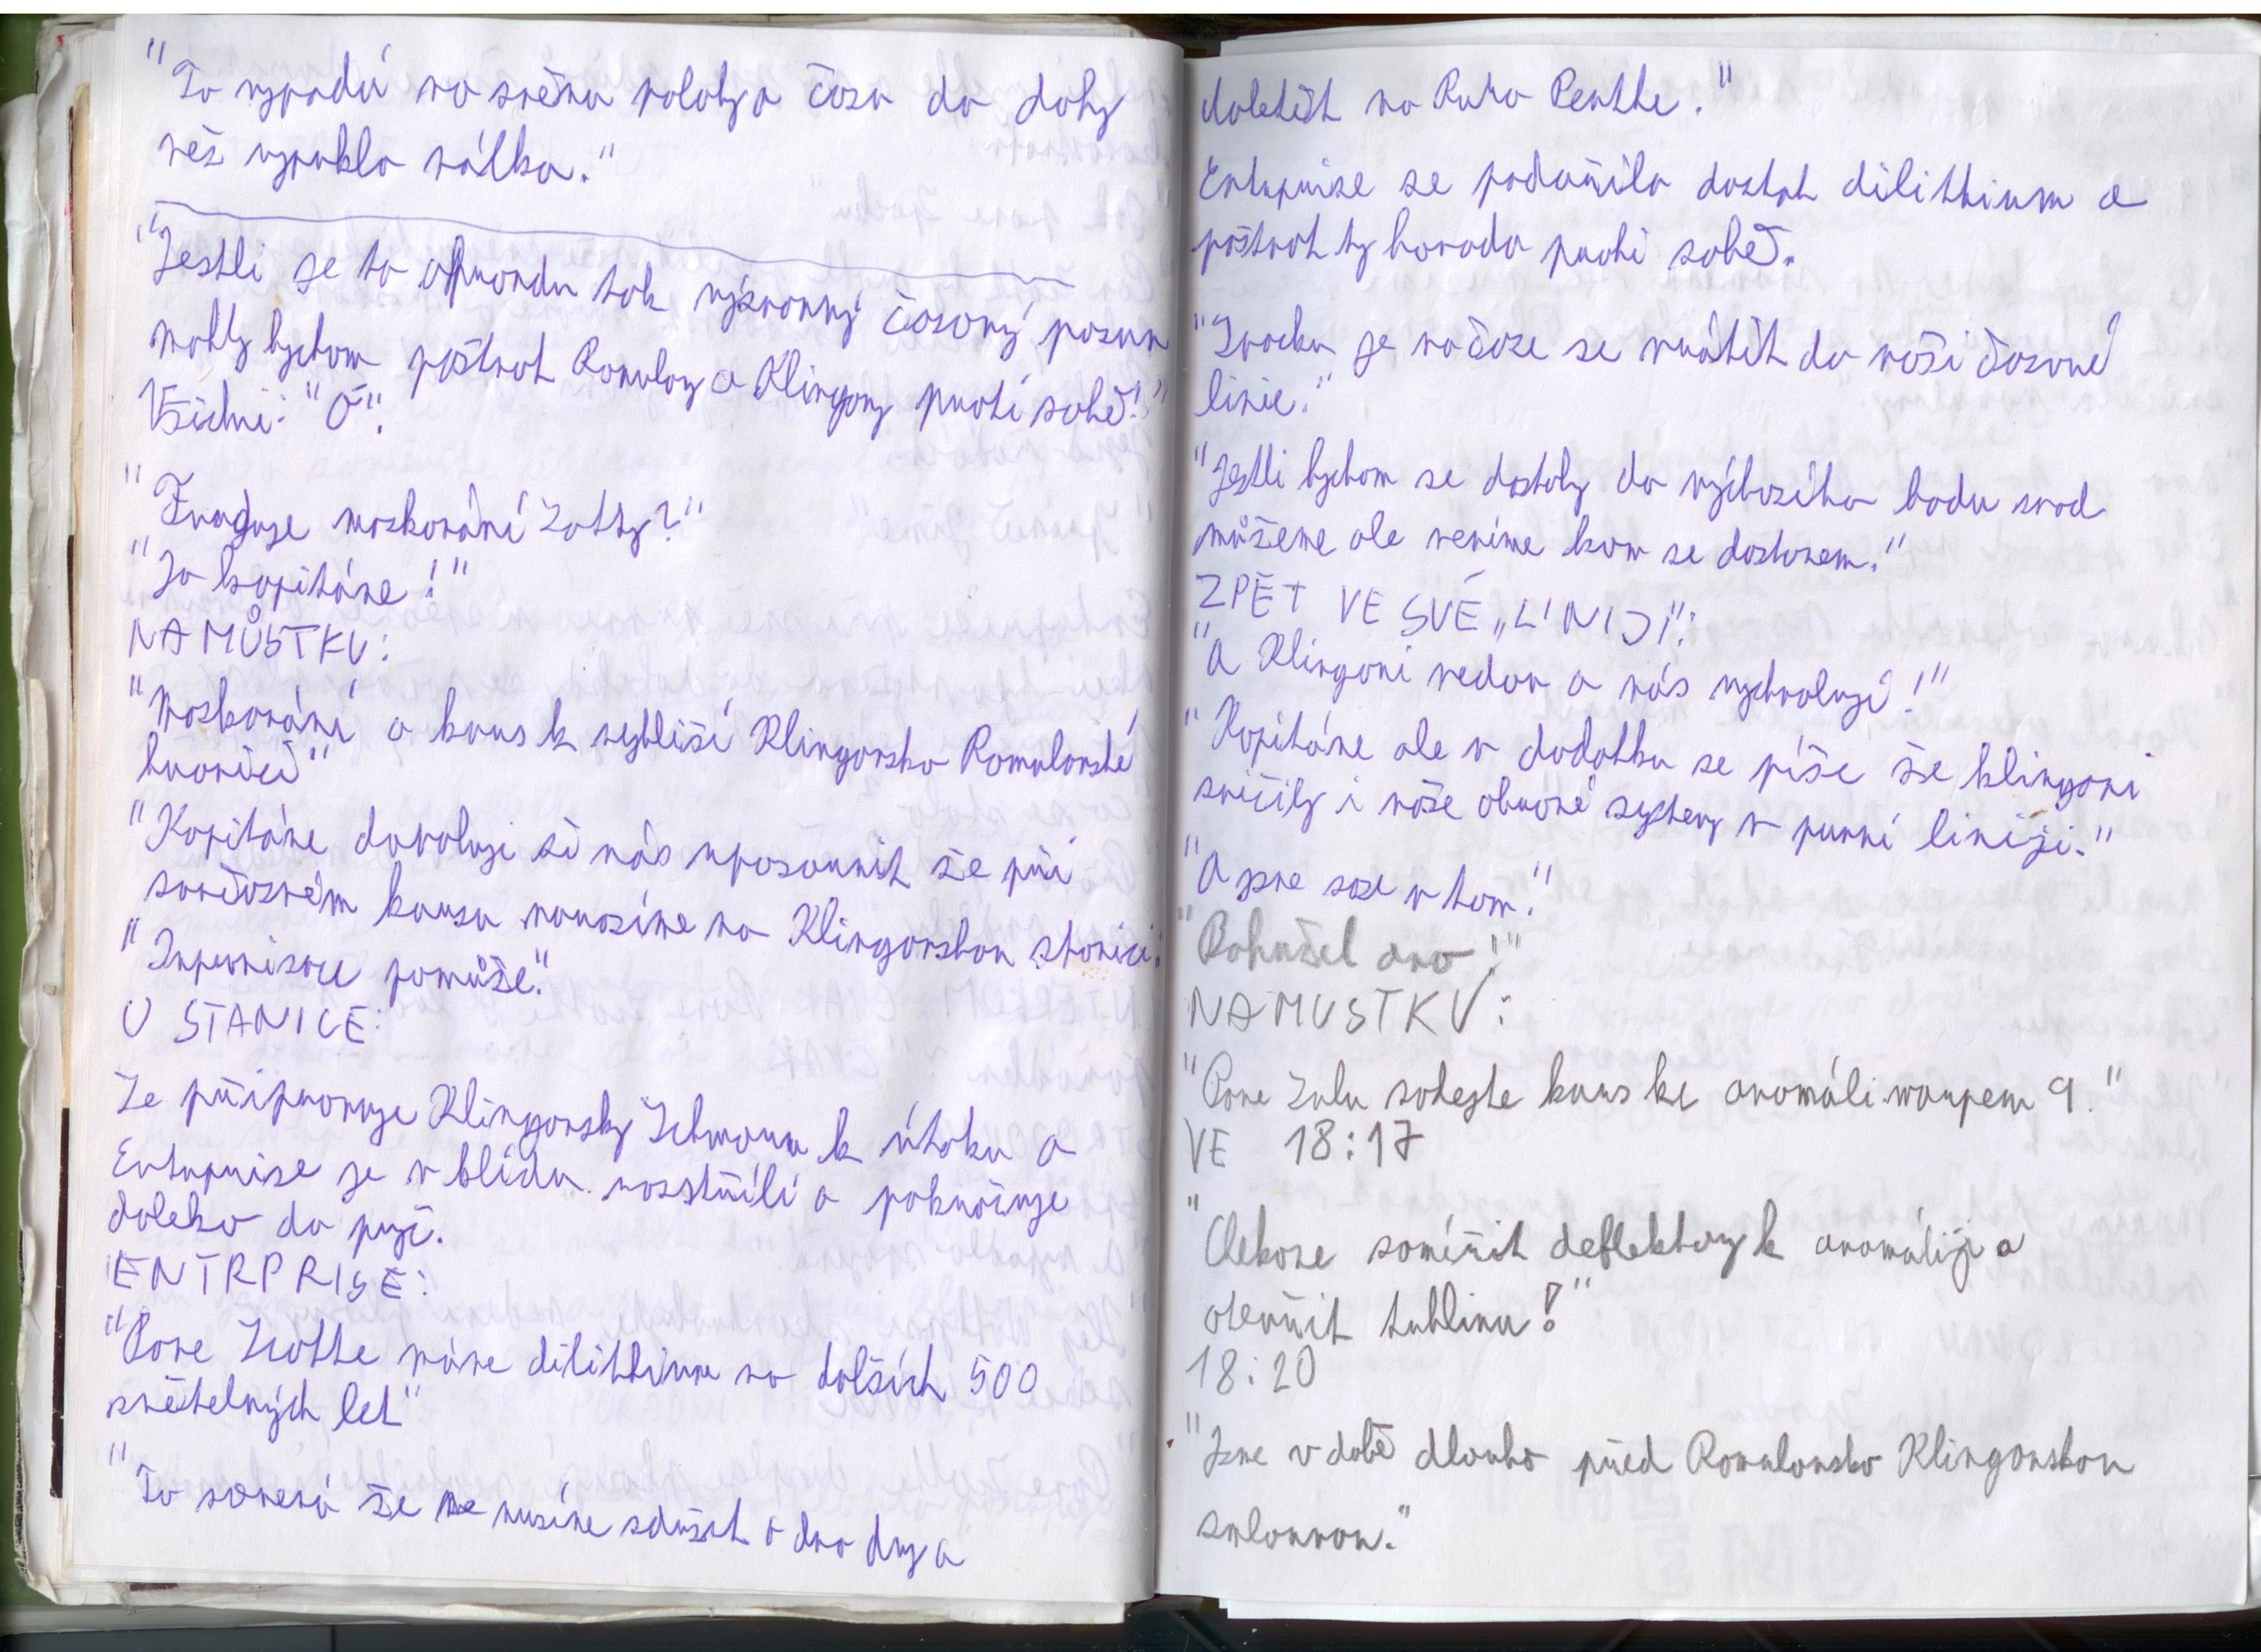 "To vypadá na změnu polohy a času do doby
než vypukla válka."
"Jestli je to opravdu tak význanný časový posun
mohly bychom poštvat Romulany a Klingony proti sobě!"
Všichni: "Ó".
"Funguje maskování Scotty?"
"Jo kapitáne!"
NA MŮSTKU:
"Maskování a kurs k nejbližší Klingonsko Romulanské
hranici"
"Kapitáne dovoluji si vás upozornit že při
současném kursu narazíme na Klingonskou stanici."
"Improvizace pomůže."
U STANICE:
Se připravuje Klingonský k útoku a
Enterprise je v klidu rozstřílí a pokračuje
daleko do pryč.
ENTRPRISE:
"Pane Scotte máme dilithium na dalších 500
světelných let"
"To znamená že se musíme zdržet o dva dny a
doletět na Rura Penthe."
Enterprise se podařilo dostat dilithium a
poštvat ty hovada proti sobě.
"Spocku je načase se vrátit do naší časové
linie."
"Jestli bychom se dostaly do výchozího bodu snad
můžeme ale nevíme kam se dostanem."
ZPĚT VE SVÉ „LINIJI":
"A Klingoni vedou a nás vychvalují!"
"Kapitáne ale v dodatku se píše že klingoni
zničily i naše obrané systemy v první liniji."
"A jsme zase v tom!"
"Bohužel ano!"
NA MUSTKU:
"Pane Sulu zadejte kurs ke anomáli warpem 9."
VE 18:17
"Chekove zaměřit deflektory k anomáliji a
otevřít trhlinu!"
18:20
"Jsme v době dlouho před Romulansko Klingonskou
smlouvou."